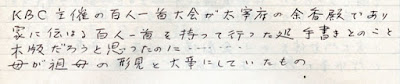 KBC主催の百人一首大会が太宰府の余香殿であり
家に伝はる百人一首を持って行った処 手書きとのこと
木版だろうと思ったのに……
母が祖母の形見と大事にしていたもの.